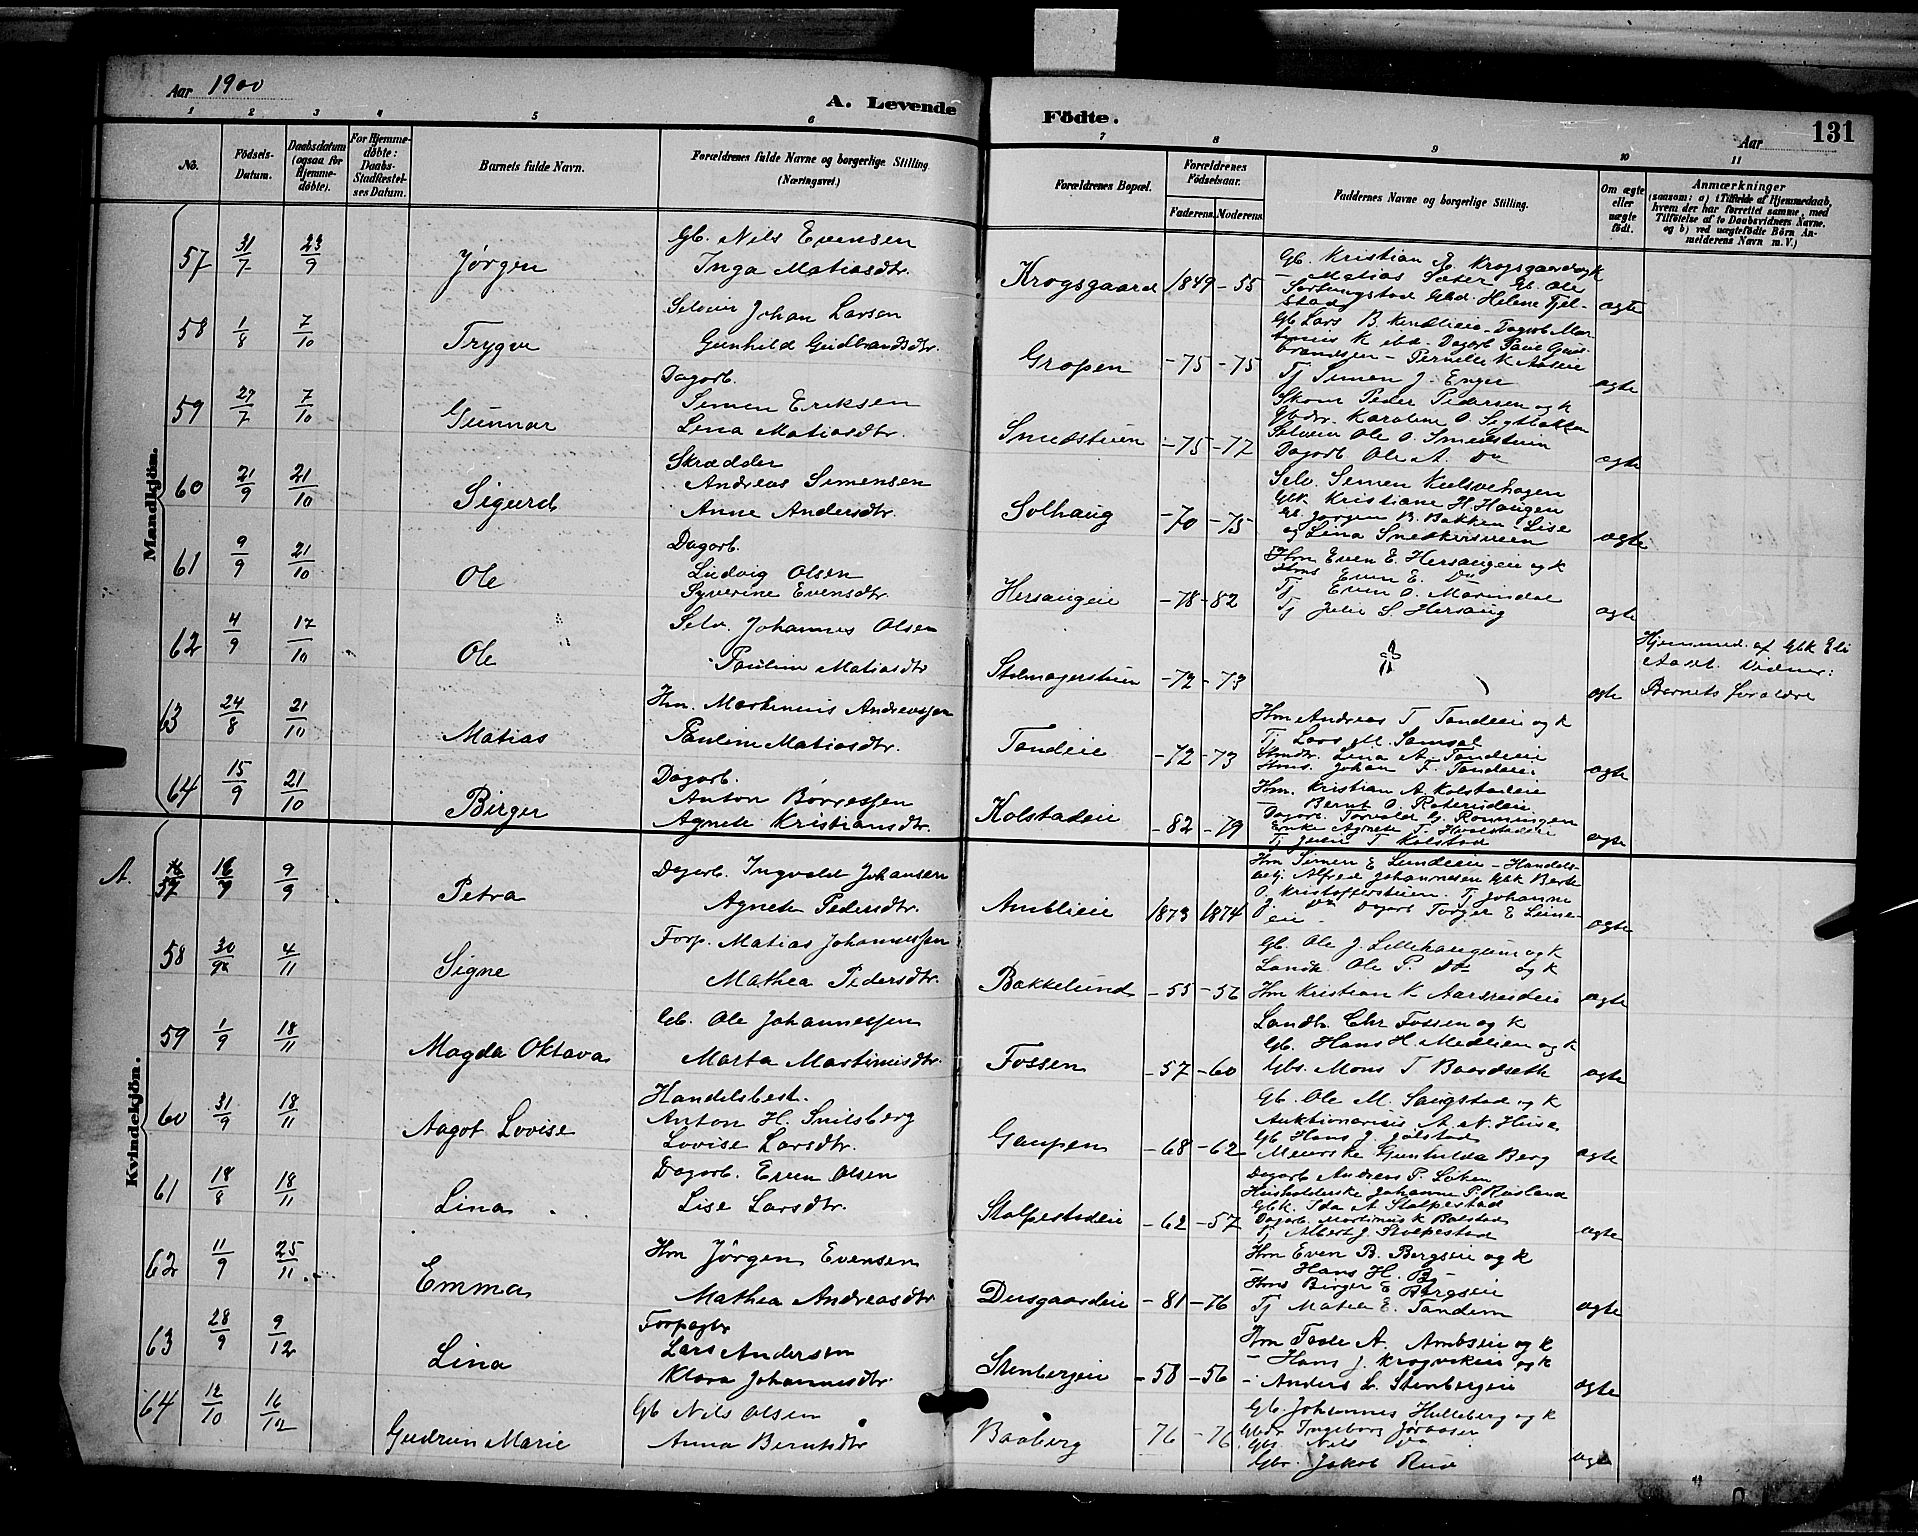 Aar 1900
A. Levende Födte.
Aar
131
1 2 3 4 5 6 7 8 9 10 11
No. Födsels-Datum. Daabsdatum (ogsaa for Hjemmedøbte). For Hjemmedøbte: Daabs-Stadfæstelses Datum. Barnets fulde Navn. Forældrenes fulde Navne og borgerlige Stilling (Næringsvei.) Forældrenes Bopæl. Forældrenes Födselsaar. Faderens. Moderens. Faddernes Navne og borgerlige Stilling. Om ægte eller uægte født. Anmærkninger (saasom: a) i Tilfælde af Hjemmedaab, hvem der har forrettet samme, med Tilføielse af to Daabsvidners Navne, og b) ved uægtefødte Börn Anmelderens Navn m. V.)
Mandkjön.
57 31/7 23/9 Jørgen Gb. Nils Evensen
Inga Matiasdtr. Krogsgaard 1849 -55 Gb. Kristian A. Krogsgaard og k
- Matias Sæter Gb. Ole
Sortungstad Gbd. Helene Fjel-
stad ægte
58 1/8 7/10 Trygve Selveier Johan Larsen
Gunhild Gudbrandsdtr. Gropen -75 -75 Gb. Lars B. Kindlieie - Dagarb. Mar
tinius K ibd - Dagarb. Paul Gud-
brandsen - Pernille K Aaseie
Tj Simen J. Enger ægte
59 27/7 7/10 Gunnar Dagarb.
Simen Eriksen
Lina Matiasdtr. Smedstuen -75 -77 Skom Peder Pedersen og k
Gbdr. Karoline O.
Selveier Ole O. Smedstuen
Dagarb Ole A. Do ægte
60 21/9 21/10 Sigurd Skrædder
Andreas Simensen
Anne Andersdtr. Solhaug -70 -75 Selv. Simen
Gbk. Kristiane H. Haugen
Gb. Jørgen B. Bakken - Lise
og Lina Snedkersveen ægte
61 9/9 21/10 Ole Dagarb.
Ludvig Olsen
Syverine Evensdtr. Hersaugeie -78 -82 Hm Even E. Hersaugeie og k
Hms Even E. Do
Tj Even O.
Tj Julie S Hersaug ægte
62 4/9 17/10 Ole Selv. Johannes Olsen
Pauline Matiasdtr. Stolmagerstuen -72 -73 ægte Hjemmed. af Gbk Eli
Aaset. Vidner:
Barnets forældre
63 24/8 21/10 Matias Hm. Martinius Andreassen
Pauline Matiasdtr. Tandeie -72 -73 Hm Andreas T. Tandeie og k
Tj Lars M. Samsal
Hmdtr. Lina A. Tandeie
Hms. Johan F. Tandeie ægte
64 15/9 21/10 Birger Dagarb.
Anton Børresen
Agnete Kristiansdtr. Kolstadeie -82 -79 Hm. Kristian A. Kolstadeie
- Bernt O.
Dagarb. Torvald G. Rønningen
Enke Agnete T.
Tj T Kolstad ægte
Kvindekjön.
A. 57 16/7 9/9 Petra Dagarb. Ingvald Johansen
Agnete Pedersdtr. Amblieie 1873 1874 Hm Simen E Lundeeie - Handels-
betj. Alfred Johannesen Gbk Berte
O. Kristofferstuen. Tj Johanne
J. Do Dagarb Torger E Linne-
eie - ægte
58 30/9 4/11 Signe Forp. Matias Johannessen
Mathea Pedersdtr. Bakkelund -55 -56 Gb. Ole J. Lillehaugen og k
Landh. Ole P. Do og k
Hm Kristian K. Aarsrudeie ægte
59 1/9 18/11 Magda Oktava Gb. Ole Johannessen
Marta Martinusdtr. Fossen -57 -60 Landh. Chr Fossen og k
Gb. Hans H. Medlien og k
Gbs. Mons T Baardseth ægte
60 31/9 18/11 Aagot Lovise Handelsbest.
Anton H. Snilsberg
Lovise Larsdtr. Gaupen -68 -62 Gb. Ole M. Saugstad og k
Auktionarius A. N. Huse
Gb Hans J. Jølstad
Meierske Gunhilda Berg ægte
61 18/8 18/11 Lina Dagarb. Even Olsen
Lise Larsdtr. Stolpestadeie -62 -57 Dagarb Andreas P. Løken
Husholderske Johanne P. Rusland
Gbk. Ida A Stolpestad
Dagarb. Martinus K Bolstad
Tj Albert J. Stolpestad ægte
62 11/9 25/11 Emma Hm Jørgen Evensen
Mathea Andreasdtr. Dusgaardeie -81 -76 Hm Even B. Bergseie og k
- Hans H. B.
Hms Birger E Bergseie
Tj Matea E. Tandem ægte
63 28/9 9/12 Lina Forpagter
Lars Andersen
Klara Johannesdtr. Stenbergeie -58 -56 Hm A. Ambseie og k
- Hans J. Krogvikeie og k
- Anders L. Stenbergeie ægte
64 12/10 16/12 Gudrun Marie Gb Nils Olsen
Anna Berntsdtr. Baaberg 76 -76 Gb. Johannes Hulleberg og k
Gbdr Ingeborg
Gbs. Nils Do
Gbs. Jakob Rud ægte